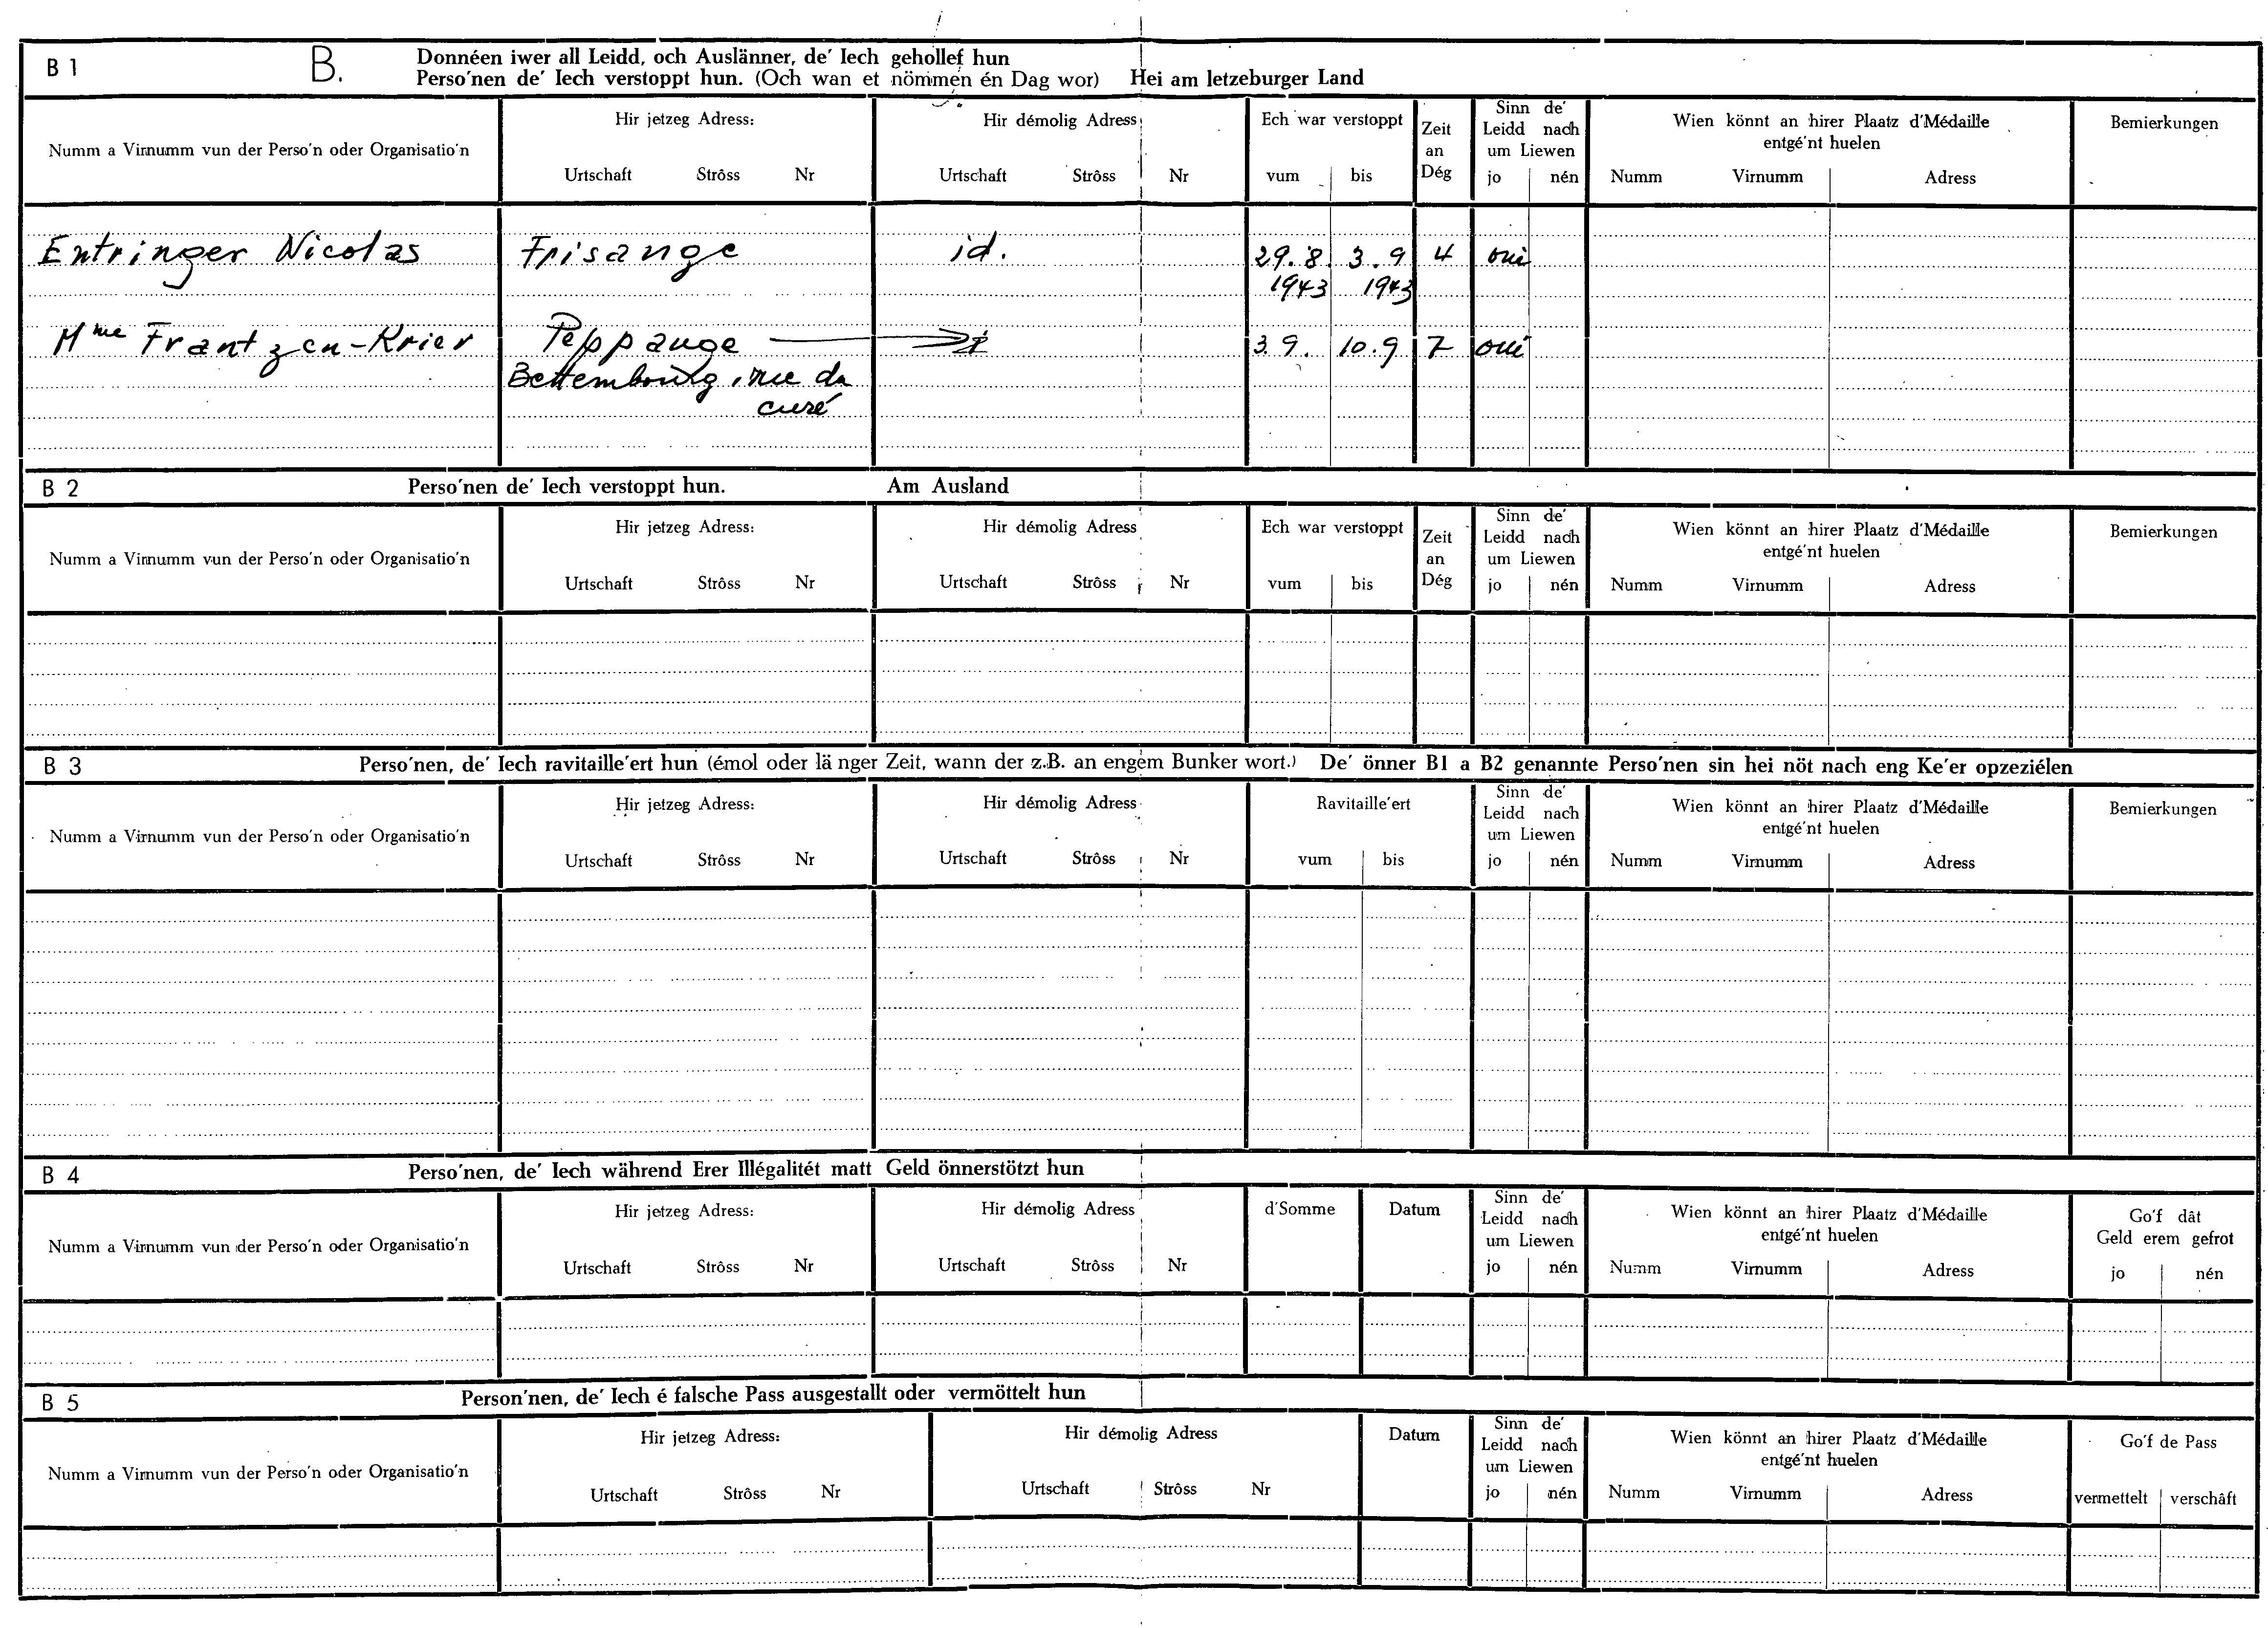 B 1 B. Donnéen iwer all Leidd, och Auslänner, de' Iech gehollef hun
Perso'nen de' Iech verstoppt hun. (Och wan et nömmen én Dag wor) Hei am letzeburger Land
Numm a Virnumm vun der Perso'n oder Organisatio'n
Hir jetzeg Adress:
Urtschaft Strôss Nr
Hir démolig Adress
Urtschaft Strôss Nr
Ech war verstoppt
vum bis
Zeit
an
Dég
Sinn de'
Leidd nach
um Liewen
jo nén
Wien könnt an hirer Plaatz d'Médaille
entgé'nt huelen
Numm Virnumm Adress
Bemierkungen
Entringer Nicolas Frisange id. 29.8. 3.9 4 oui
1943 1943
Mme Frantzen-Krier Peppange 3.9. 10.9 7 oui
Bettembourg, rue du
curé
B 2 Perso'nen de' Iech verstoppt hun. Am Ausland
Numm a Virnumm vun der Perso'n oder Organisatio'n
Hir jetzeg Adress:
Urtschaft Strôss Nr
Hir démolig Adress
Urtschaft Strôss Nr
Ech war verstoppt
vum bis
Zeit
an
Dég
Sinn de'
Leidd nach
um Liewen
jo nén
Wien könnt an hirer Plaatz d'Médaille
entgé'nt huelen
Numm Virnumm Adress
Bemierkungen
B 3 Perso'nen, de' Iech ravitaille'ert hun (émol oder länger Zeit, wann der z.B. an engem Bunker wort.) De' önner B1 a B2 genannte Perso'nen sin hei nöt nach eng Ke'er opzeziélen
Numm a Virnumm vun der Perso'n oder Organisatio'n
Hir jetzeg Adress:
Urtschaft Strôss Nr
Hir démolig Adress
Urtschaft Strôss Nr
Ravitaille'ert
vum bis
Sinn de'
Leidd nach
um Liewen
jo nén
Wien könnt an hirer Plaatz d'Médaille
entgé'nt huelen
Numm Virnumm Adress
Bemierkungen
B 4 Perso'nen, de' Iech während Erer Illégalitét matt Geld önnerstötzt hun
Numm a Virnumm vun der Perso'n oder Organisatio'n
Hir jetzeg Adress:
Urtschaft Strôss Nr
Hir démolig Adress
Urtschaft Strôss Nr
d'Somme
Datum
Sinn de'
Leidd nach
um Liewen
jo nén
Wien könnt an hirer Plaatz d'Médaille
entgé'nt huelen
Numm Virnumm Adress
Go'f dât
Geld erem gefrot
jo nén
B 5 Person'nen, de' Iech é falsche Pass ausgestallt oder vermöttelt hun
Numm a Virnumm vun der Perso'n oder Organisatio'n
Hir jetzeg Adress:
Urtschaft Strôss Nr
Hir démolig Adress
Urtschaft Strôss Nr
Datum
Sinn de'
Leidd nach
um Liewen
jo nén
Wien könnt an hirer Plaatz d'Médaille
entgé'nt huelen
Numm Virnumm Adress
Go'f de Pass
vermettelt verschâft